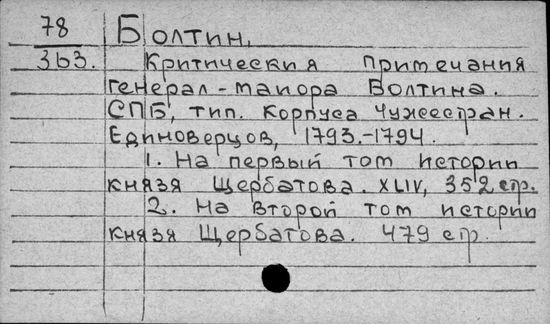 78 Болтин,
3б3. Критическия примечания
генерал-маиора Болтина.
СПБ, тип. Корпуса Чужестран.
Единоверцов, 1793.-1794.
1. На первый том истории
князя Щербатова. XLIV, 352 стр.
2. На второй том истории
князя Щербатова. 479 стр.